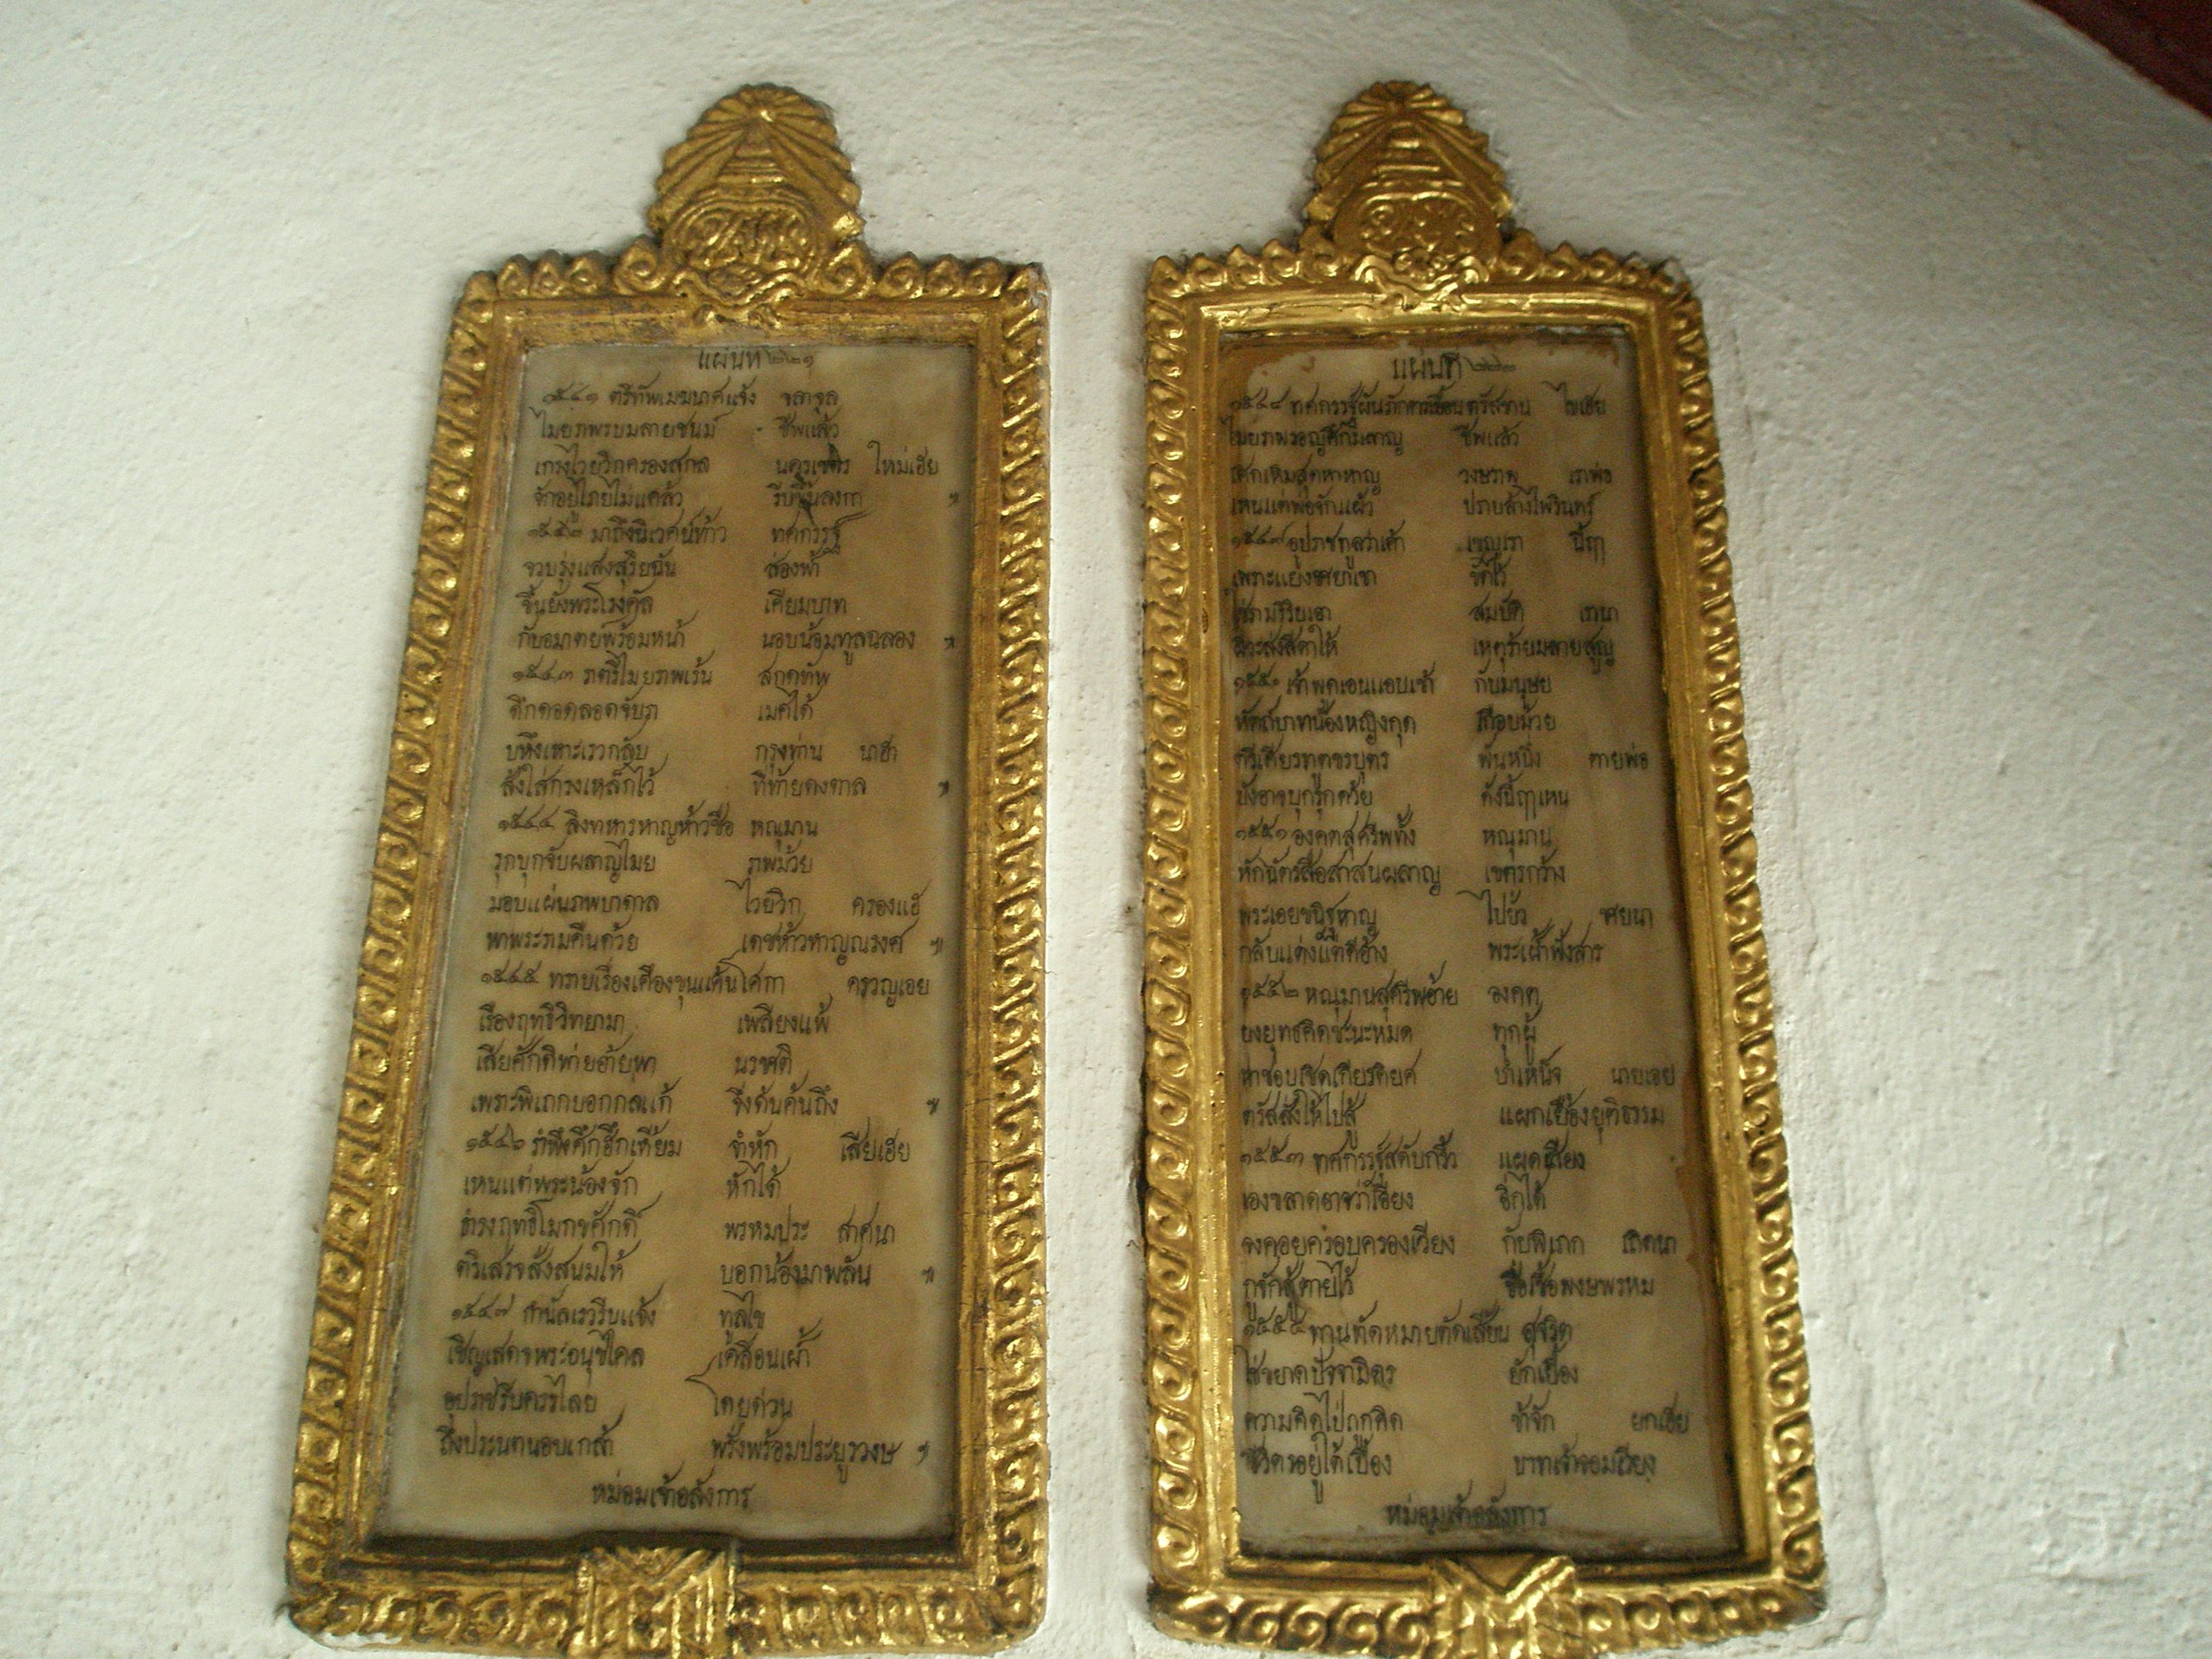 แผ่นที่ ๒๒๑
๑๕๔๑ ตรีทัพเมฆนาศแจ้ง
ไมยภพรบมลายชนม์ ชีพแล้ว
เกรงไวยวิกครองสกล ใหม่เฮย
จักอยู่ไภยไม่แคล้ว รีบขึ้นลงกา ฯ
๑๕๔๒ มาถึงนิเวศน์ท้าว ทศกรรฐ์
จวบรุ่งแสงสุริยฉัน ส่องฟ้า
ขึ้นยังพระโรงคัล เคียมบาท
กับอมาตยพร้อมหน้า นอบน้อมทูลฉลอง ฯ
๑๕๔๓ ราตรีไมยภพเร้น สกดทัพ
ลึกดอดลอดจับรา เมศได้
บหึงเหาะเรวกลับ กรุงท่าน นาฮา
สั่งใส่กรงเหล็กไว้ ที่ท้ายดงตาล ฯ
๑๕๔๔ ลิงทหารหาญห้าวชื่อ หณุมาน
รุกบุกจับผลาญไมย ภพม้วย
มอบแผ่นภพบาดาล ไวยวิก ครองแฮ
พาพระรามคืนด้วย เดชห้าวหาญณรงค์ ฯ
๑๕๔๕ ทราบเรื่องเคืองขุ่นแค้นโศกา ครวญเอย
เรืองฤทธิวิทยามา เพลี่ยงแพ้
เสียศักดิพ่ายอ้ายพา นรชาติ
เพราะพิเภกบอกกลแก้ จึ่งด้นค้นถึง ฯ
๑๕๔๖ รำพึงศึกฮึกเหี้ยม จำหัก เสียเฮย
เหนแต่พระน้องจัก หักได้
ธำรงฤทธิโมกขศักดิ์ พรหมประ สาศนา
ตริเสรจสั่งสนมให้ บอกน้องมาพลัน ฯ
๑๕๔๗ กำนัลเรวรีบแจ้ง ทูลไข
เชิญเสดจพระอนุชไคล เค้ลื่อนเฝ้า
อุปราชรีบครรไลย โดยด่วน
ถึงประนตนอบเกล้า พรั่งพร้อมประยูรวงษ ฯ
หม่อมเจ้าอลังการ
แผ่นที่ ๒๒๒
๑๕๔๘ ทศกรรฐ์ผันภักตรเอื้อนตรัสขาน ไขเฮย
ไมยภพรอญศึกมลาญ ชีพแล้ว
วงษราพ เราพ่อ
เหนแต่พ่อจักแผ้ว ปราบล้างไพรินทร์
๑๕๔๙ อุปราชทูลว่าเจ้า
เพราะแย่งชายาเขา
สมบัติ เขานา
สิวะส่งสีดาให้ เหตุร้ายมลายสูญ
๑๕๕๐ เจ้าพูดเอนแอบเข้า กับมนุษย
หัตถ์บาทน้องหญิงกุด เกือบม้วย
ตรีเศียรทูตขรบุตร พันหนึ่ง ตายพ่อ
ยังอาจบุกรุกด้วย ดังนี้ฤๅเหน
๑๕๕๑ องคตสุครีพทั้ง หณุมาน
หักฉัตรสื่อสาสนผลาญ เขตรกว้าง
พระเอยขนิฐหาญ ไปยั่ว
กลับแต่งแต่คำอ้าง พระเฝ้าฟังสาร
๑๕๕๒ หณุมานสุครีพอ้าย องคต
ยงยุทธคิดชะนะหมด ทุกผู้
หาชอบเชิดเกียรติยศ บำเหน็จ นายเฮย
ตรัสสั่งให้ไปสู้ แผกเยื้องยุติธรรม
๑๕๕๓ ทศกรรฐ์สดับกริ้ว แผดเสียง
เองขลาดอาจว่าเอียง อีกได้
จงคอยครอบครองเวียง กับพิเภก เถิดนา
กูจักสู้ตายไว้ ชื่อเชื้อพงษพรหม
๑๕๕๔ ทานทัดหมายตัดเสี้ยน สุจริต
ใช่ขยาดปัจจามิตร ยักเยื้อง
ความคิดไป่ถูกคิด ข้าจัก ยกเฮย
ชีวิตรอยู่ใต้เบื้อง บาทเจ้าจอมเวียง
หม่อมเจ้าอลังการ